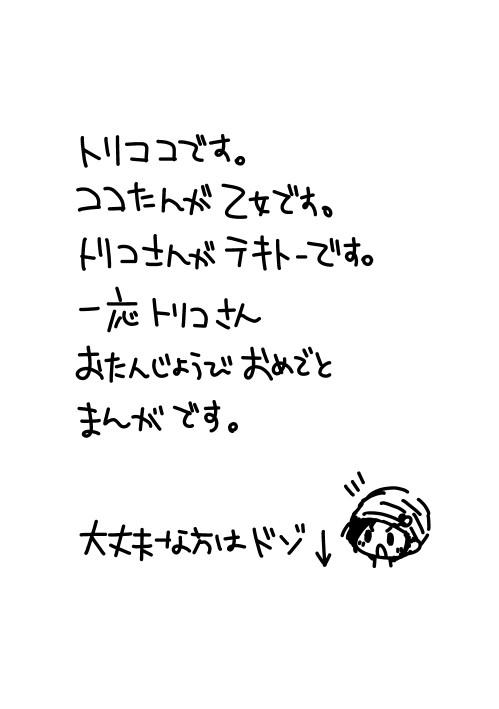 トリココです。
ココたんが乙女です。
トリコさんがテキトーです。
一応トリコさん
おたんじょうびおめでと
まんがです。
大丈夫な方はドゾ↓